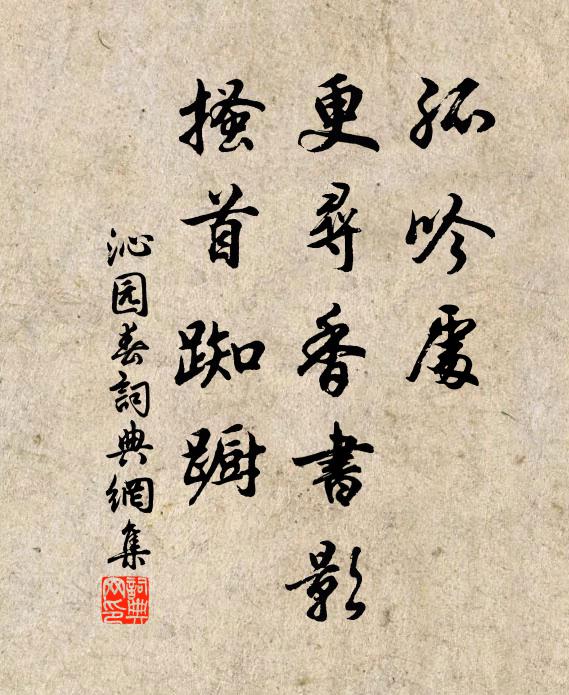 孤吟處
更尋香書影
搔首踟躕
沁园春詞典網集
詞典